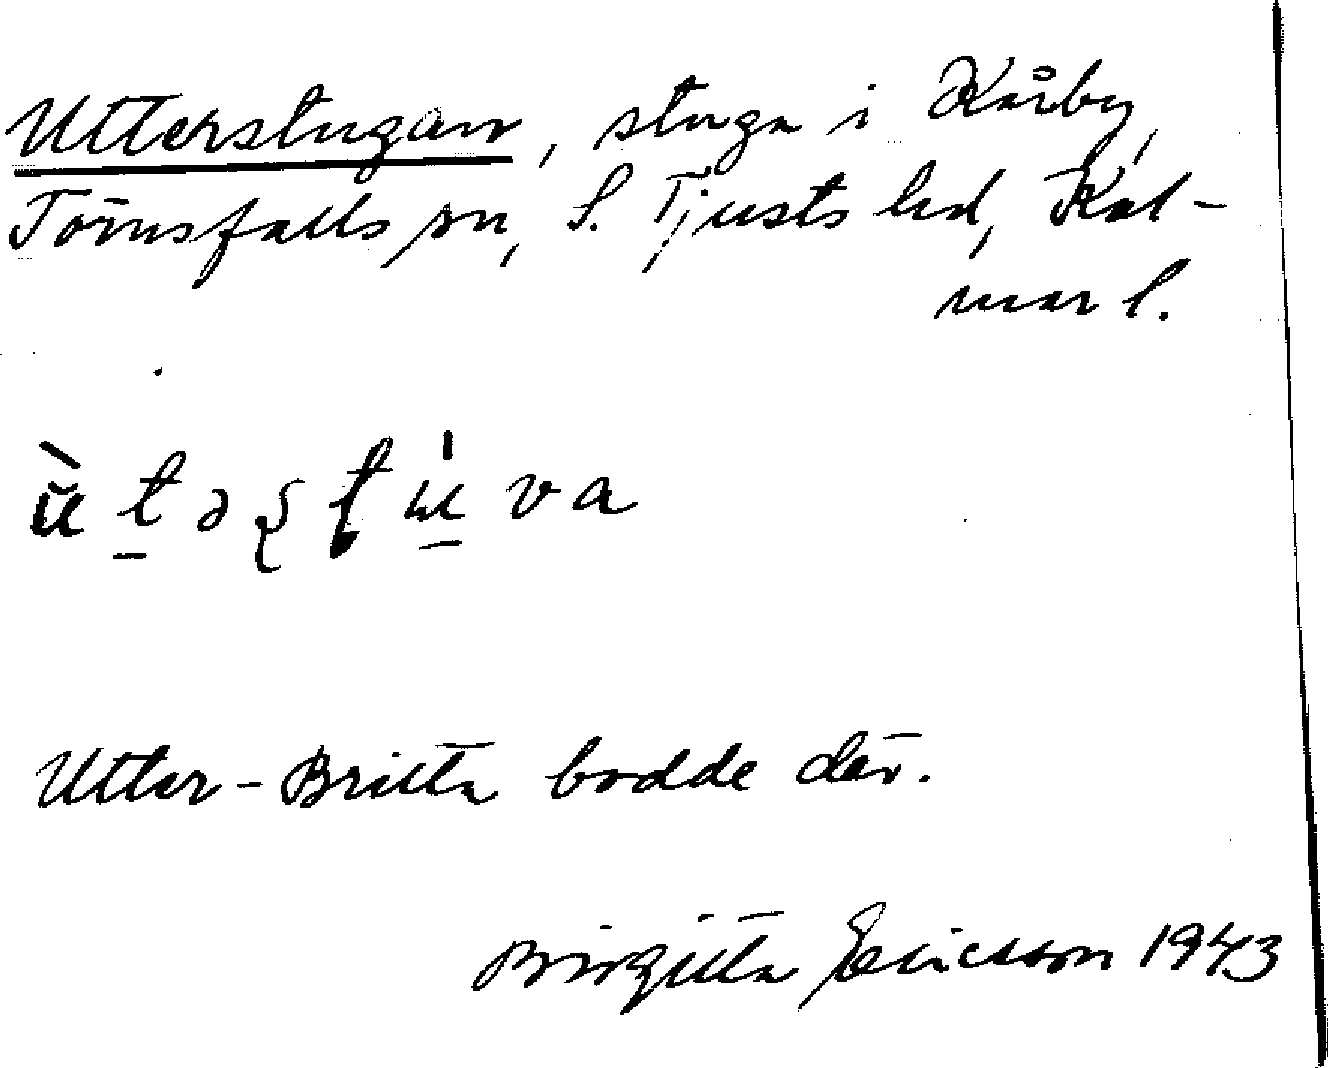 Utterstugan, stuga i Kårby,
Törnsfalls sn, S. Tjusts hd, Kal-
mar l.
Utter-Britta bodde där.
Birgitta Ericsson 1943